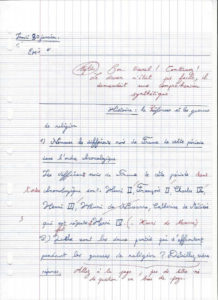 Jeudi 30 janvier.
Bon travail ! Continuez !
Le devoir n'était pas facile, il
demandait une compréhension
synthétique
Histoire : la Réforme et les guerres
de religion
1) Nommez les différents rois de France de cette période
dans l'ordre chronologique
Les différents rois de France de cette période dans
l'ordre chronologique sont : Henri II, François II, Charles IX,
Henri III, Henri de Navarre, Catherine de Médicis
qui est Henri IV (Henri de Navarre)
2) Quels sont les deux partis qui s'affrontent
pendant les guerres de religion ? Détaillez votre
réponse. Allez à la page, pas de titre ni
de question en bas de page.